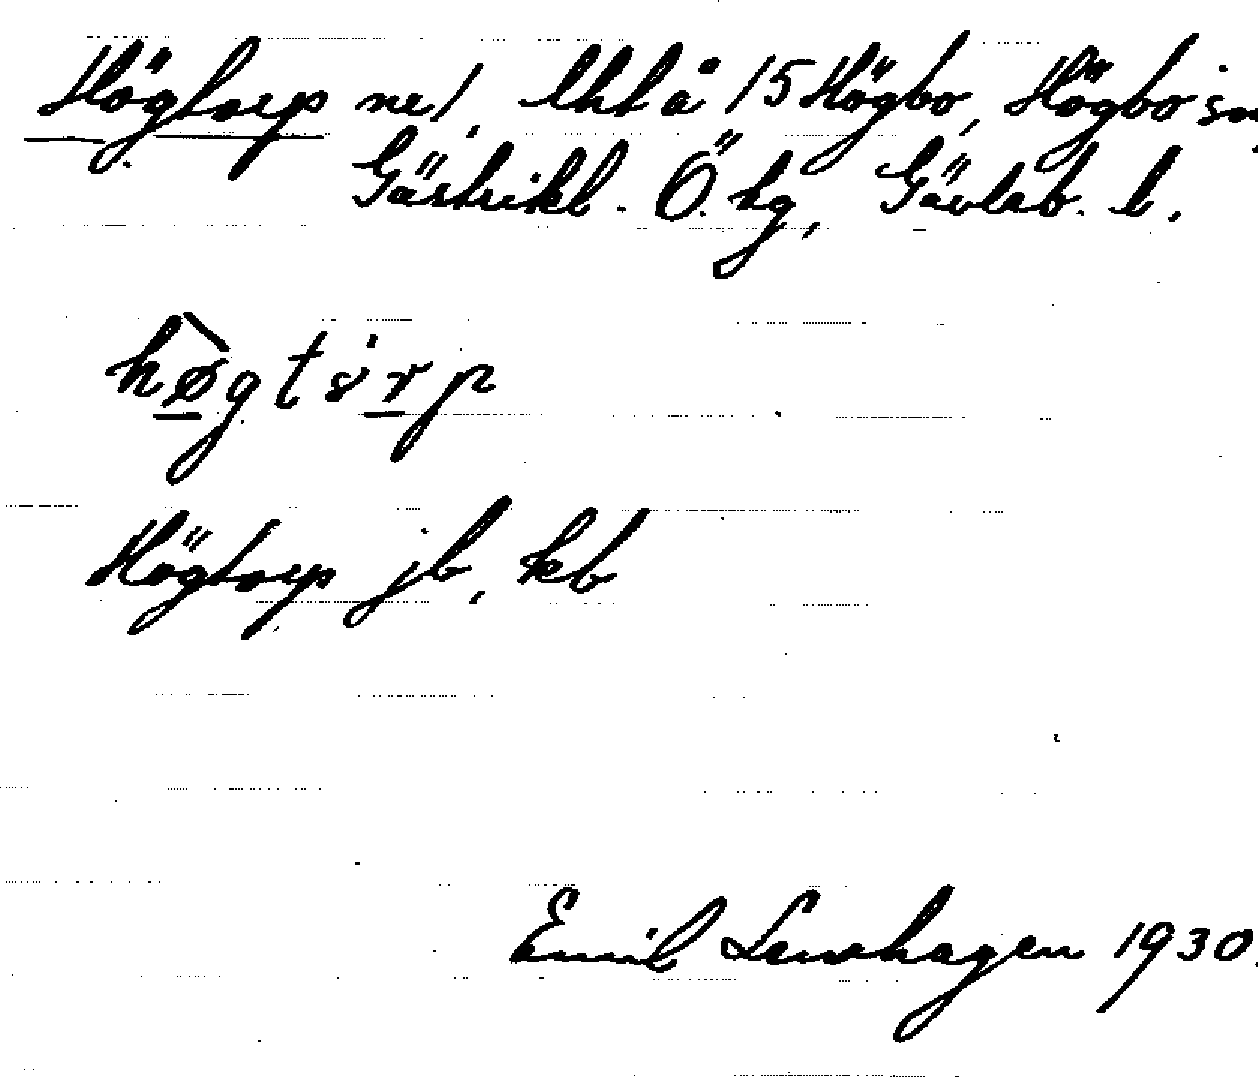 Högtorp ne!, lht å 15 Högbo, Högbo sn,
Gästrikl. Ö. hg, Gävleb. l.
høgtorp
Högtorp jb, kb
Emil Lenshagen 1930.